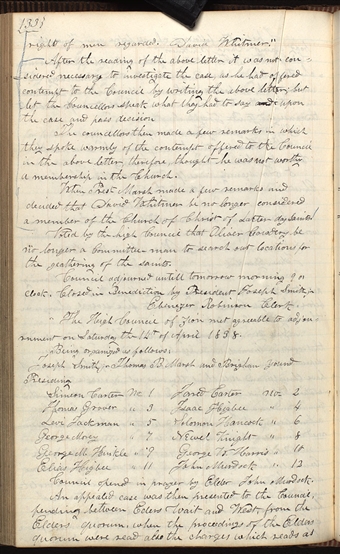 1838
right of men regarded. David Whitmer."
After the reading of the above letter it was not con-
sidered necessary to investigate the case, as he had offered
contempt to the Council by writing the above letter, but
let the Councillors speak what they had to say upon
the case and pass decision
The councillors then made a few remarks in which
they spoke warmly of the contempt offered to the Council
in the above letter, therefore, thought he was not worthy
a membership in the Church.
When Prest Marsh made a few remarks and
decided that David Whitmer be no longer considered
a member of the Church of Christ of Latter day Saints
Voted by the high Council that Oliver Cowdery be
no longer a Committee man to search out locations for
the gathering of the saints.
Council adjourned untill tomorrow morning 9 o
clock. Closed in Benediction by President Joseph Smith jr
Ebenezer Robinson Clerk.
"The High Council of Zion met agreeable to adjou-
rnment on Saturday the 14th of April 1838.
Being organized as follows:
Joseph Smith jr Thomas B. Marsh and Brigham Young
Presiding
Simeon Carter No. 1 Jared Carter no. 2
Thomas Grover " 3 Isaac Higbee " 4
Levi Jackman " 5 Solomon Hancock " 6
George Morey " 7 Newel Knight " 8
George M. Hinkle " 9 George W. Harris " 10
Elias Higbee " 11 John Murdock " 12
Council opened in prayer by Elder John Murdock.
An appealed case was then presented to the Council,
pending between Elders Wait and West, from the
Elders quorum, when the proceedings of the Elders
quorum were read also the charges which reads as